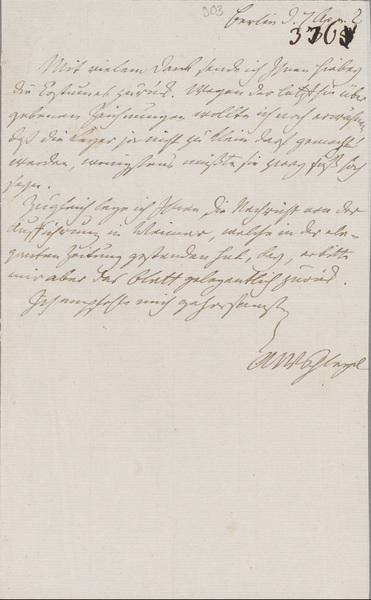 303
Berlin d. 7 Apr. 2
3768
Mit vielem Dank sende ich Ihnen hiebey
die Costumes zurück. Wegen der letzthin über
gebenen Zeichnungen wollte ich noch erwähnen
daß die Leyer ja nicht zu klein darf gemacht
werden, wenigstens müßte sie zwey Fuß hoch
seyn.
Zugleich lege ich Ihnen die Nachricht von der
Aufführung in Weimar, welche in der ele-
ganten Zeitung gestanden hat, bey, erbitte
mir aber das Blatt gelegentlich zurück.
Ich empfehle mich gehorsamst
AWSchlegel